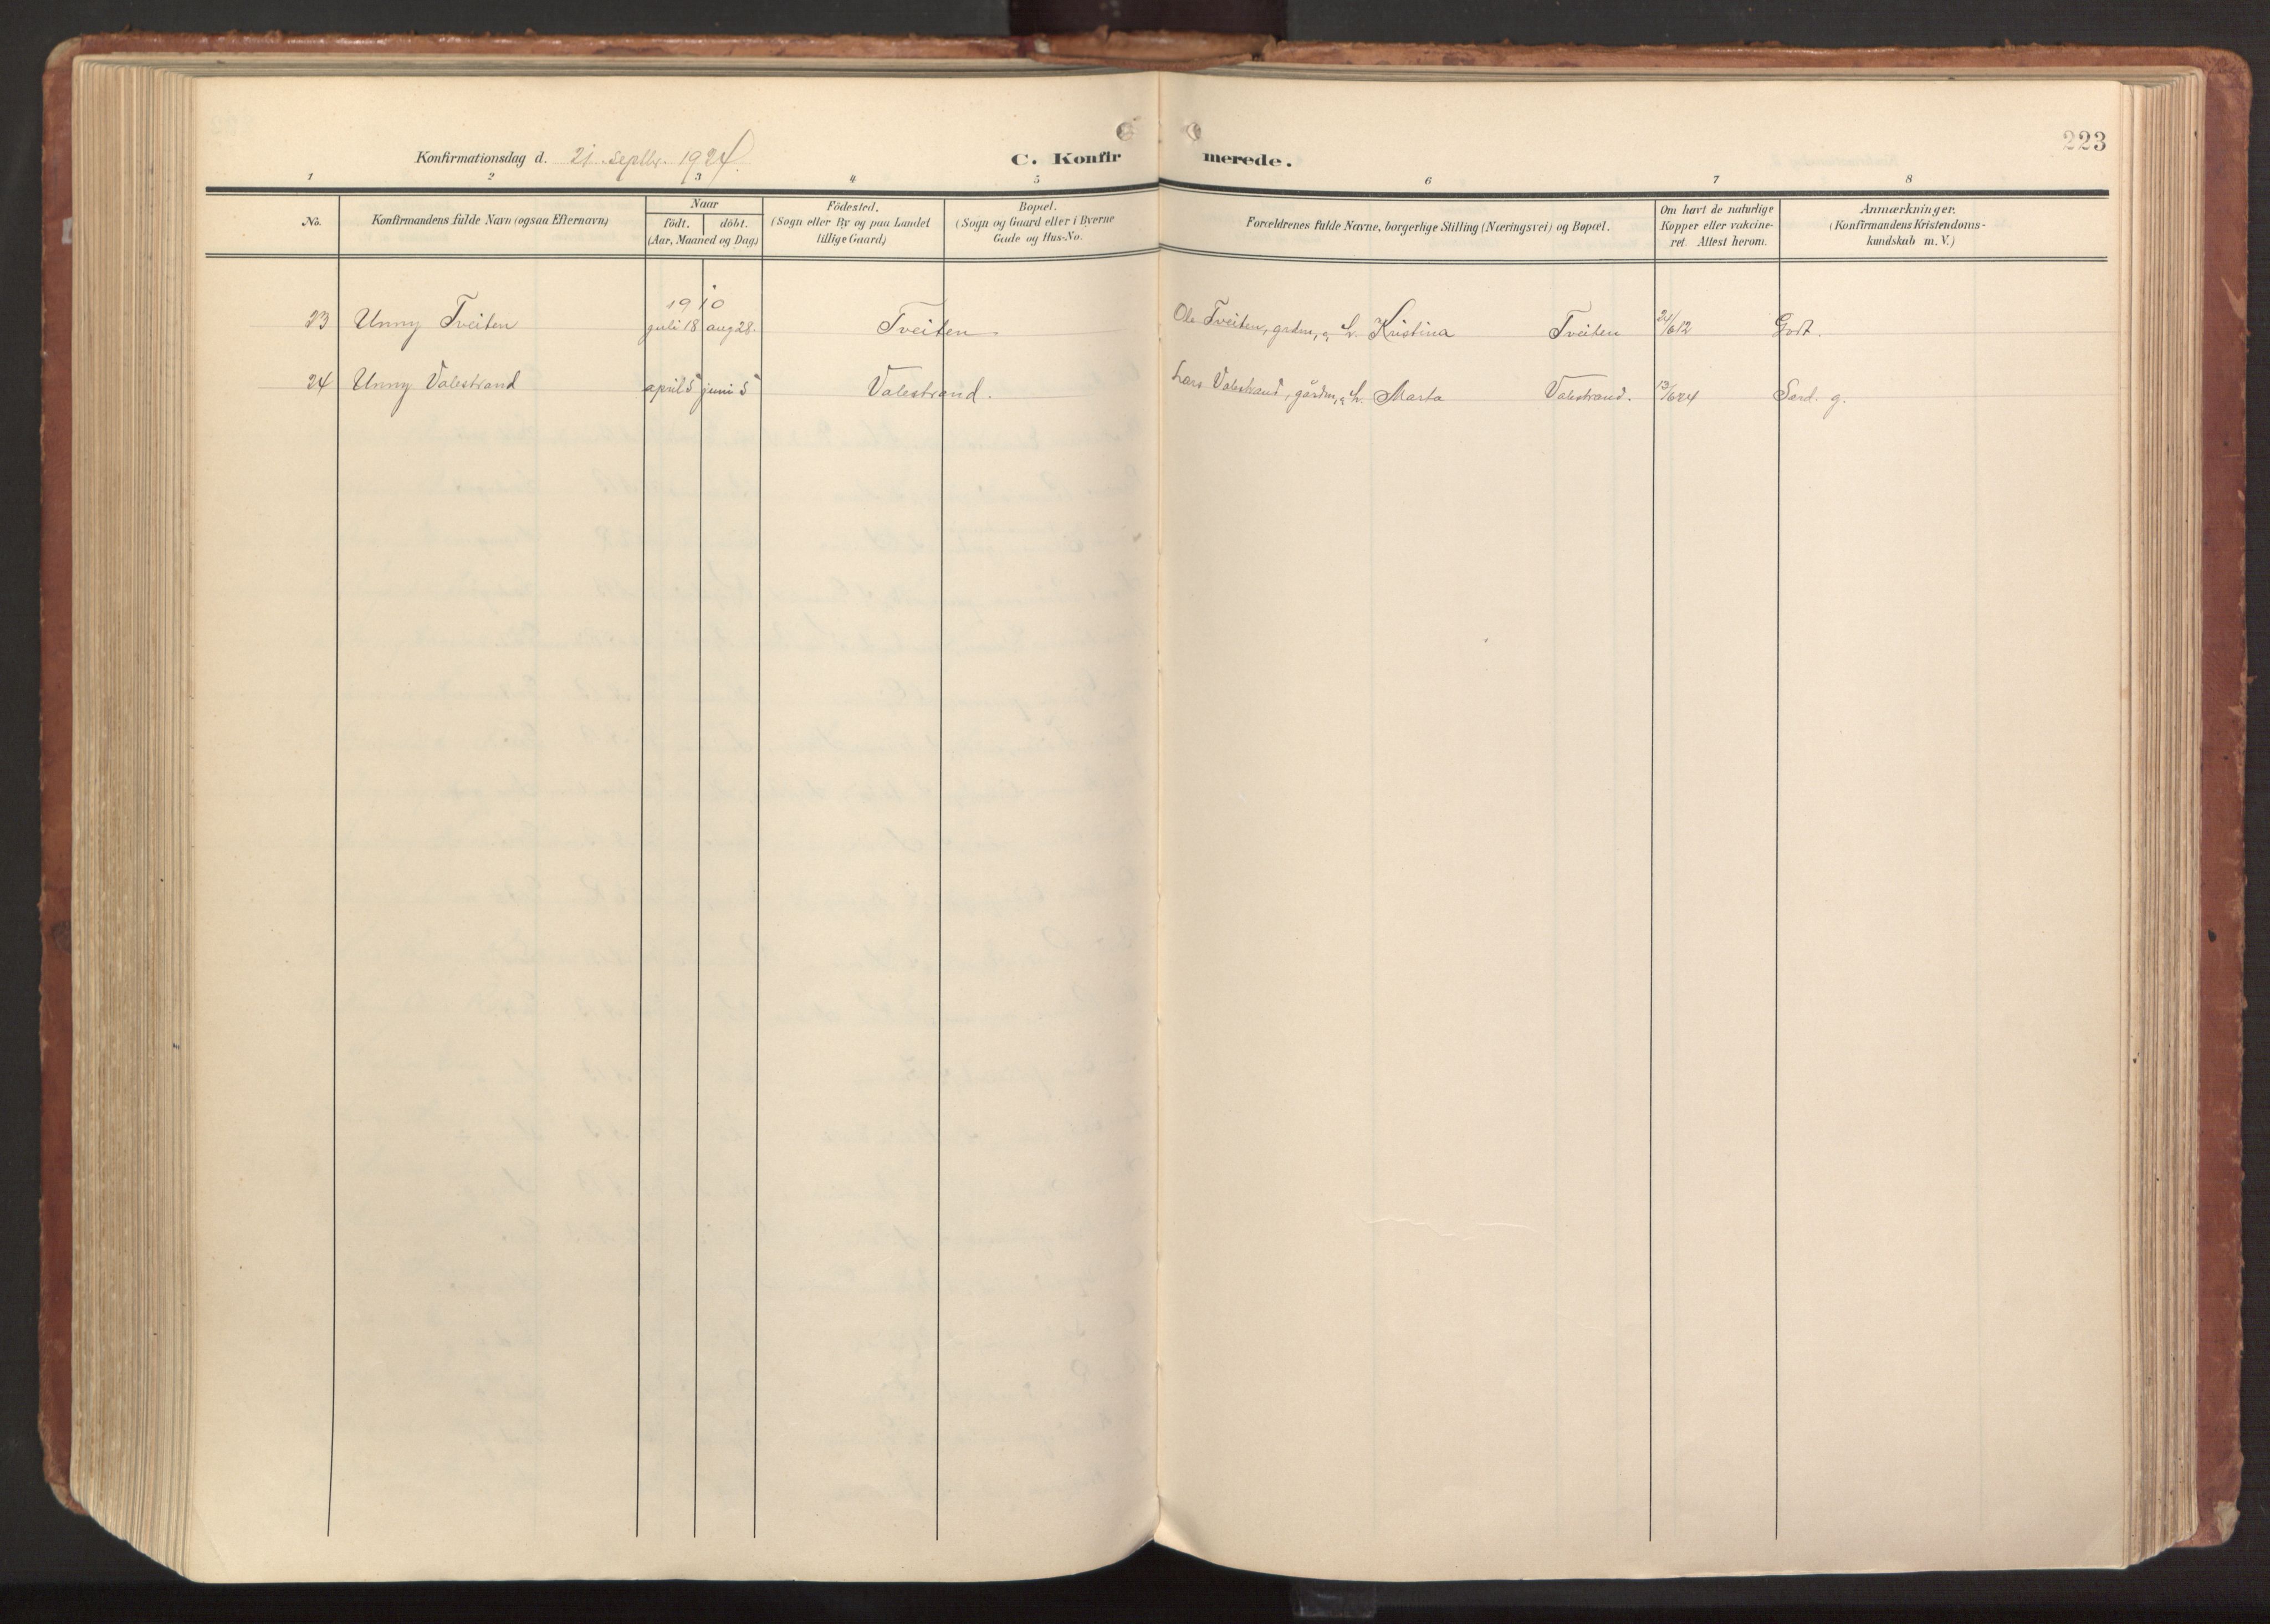 223
Konfirmationsdag d. 21. septbr. 1924.
C. Konfirmerede.
1 2 3 4 5 6 7 8
No.
Konfirmandens fulde Navn (ogsaa Efternavn)
Naar
födt. döbt.
(Aar, Maaned og Dag)
Födested.
(Sogn eller By og paa Landet
tillige Gaard)
Bopæl.
(Sogn og Gaard eller i Byerne
Gade og Hus-No.
Forældrenes fulde Navne, borgerlige Stilling (Næringsvei) og Bopæl.
Om havt de naturlige
Kopper eller vakcine-
ret. Attest herom.
Anmærkninger.
(Konfirmandens Kristendoms-
kundskab m. V.)
1910
23 Unny Tveiten juli 18 aug 28. Tveiten. Ole Tveiten, grdm, h. Kristina Tveiten 24/612 Godt.
24 Unny Valestrand april 5 juni 5 Valestrand. Lars Valestrand, gårdm, h. Marta Valestrand. 13/624 Særd. g.